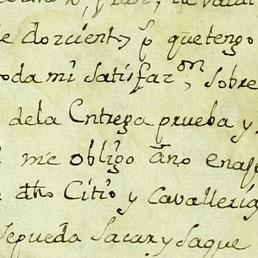 e dozcient,, p quetengo
oda mi Satisfazon, Sobre
dela Entrega prueba y
me obligo áno enage
dho Citio y Cavalleria
Sepueda Sacar y Saque